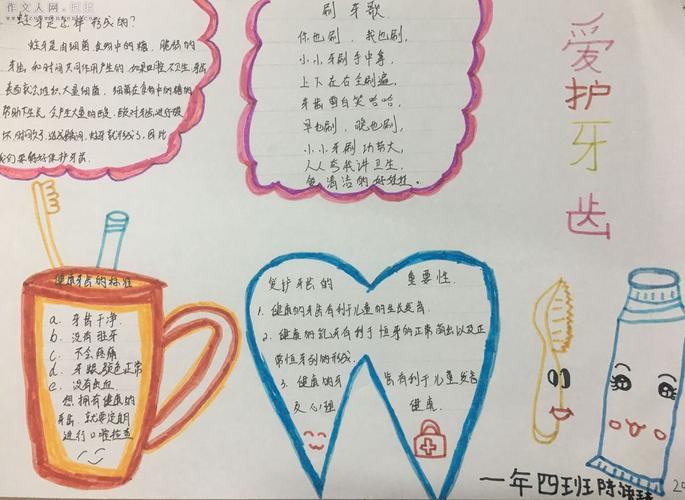 作文人网
蛀牙是怎样形成的？
蛀牙是由细菌、食物中的糖、脆弱的
牙齿和时间共同作用产生的。如果口腔不卫生，牙齿
表面就会堆积大量细菌。细菌在食物中的糖的
帮助下生长，会产生大量的酸，酸对牙齿进行破
坏，时间久了，造成龋洞，蛀牙就形成了，因此
我们要好好保护牙齿。
刷牙歌
你也刷，我也刷，
小小牙刷手中拿，
上下左右全刷遍，
牙齿雪白笑哈哈，
早也刷，晚也刷，
小小牙刷功劳大，
人人夸我讲卫生，
爱清洁的好娃娃。
爱护牙齿
健康牙齿的标准
a. 牙齿干净.
b. 没有蛀牙
c. 不会疼痛
d. 牙龈颜色正常
e. 没有出血
想拥有健康的
牙齿，就要定期
进行口腔检查
爱护牙齿的重要性.
1. 健康的牙齿有利于儿童的生长发育.
2. 健康的乳牙有利于恒牙的正常萌出以及正
常恒牙列的形成.
3. 健康的牙齿有利于儿童发音
及心理健康.
一年四班 陈